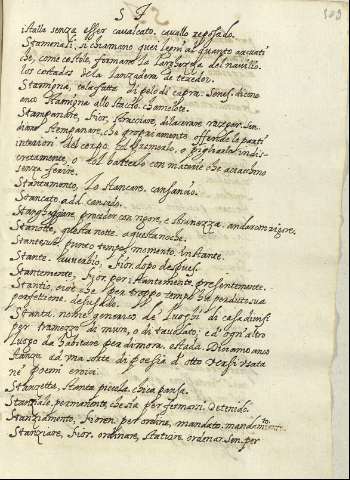 S T
stalla senza esser cavalcato. cavallo reposado.
Stamenali, si chiamano quei legni alquanto arcuati
che, come costole, formano la larghezza del navillo.
los costados de la lanzadera de texedor.
Stamigna, tela fatta di pelo di capra. Sanesi dicono
anco stamigna allo staccio. chamelote.
Stampanare, Fior. stracciare, dilacerare. razgar. Sen.
dicono stempanare, che propriamente offende le parti
interiori del corpo,
cretamente, o col batterlo con materie che acciacchino
senza ferire.
Stancamento, Lo stancare. cansancio.
Stancato add. cansado.
Stangheggiare, proceder con rigore, e stiratezza. andar con rigore.
Stanotte, questa notte. aquesta noche.
Stante, punto, tempo, momento, instante.
Stante. avverbio, Fior. dopo. despues.
Stantemente, Fior. per instantemente. presentemente.
Stantio, cioè che per troppo tempo ha perduto sua
perfettione. desusado.
Stanza. nome generico de' luoghi di casa divisi
per tramezzo di muro, o di tavolato; e d'ogn'altro
luogo da habitare per dimora. estada. Diciamo anco
Stanza ad una sorte di poesia d'otto versi usata
ne' poemi eroici.
Stanzetta, stanza piccola. chica pausa.
Stanziale. permanente, che sia per fermarsi. detenido.
Stanziamento, Fioren. per ordine, mandato. mandamiento.
Stanziare, Fior. ordinare, statuire. ordenar. Sen. per